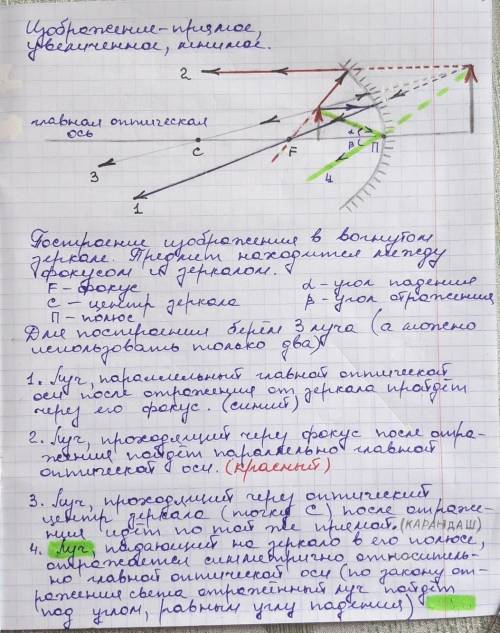 Изображение-прямое,
увеличенное, мнимое.
2
главная оптическая
ось
C
F
α
β
П
3
1
4
Построение изображения в вогнутом
зеркале. Предмет находится между
фокусом и зеркалом.
F – фокус
α – угол падения
C – центр зеркала
β – угол отражения
П – полюс
Для построения берём 3 луча (а можно
использовать только два)
1. Луч, параллельный главной оптической
оси после отражения от зеркала пройдёт
через его фокус. (синий)
2. Луч, проходящий через фокус после отра-
жения пойдёт параллельно главной
оптической оси. (красный)
3. Луч, проходящий через оптический
центр зеркала (точку C) после отраже-
ния идёт по той же прямой. (КАРАНДАШ)
4. Луч, падающий на зеркало в его полюсе,
отражается симметрично относитель-
но главной оптической оси (по закону от-
ражения света отражённый луч пойдёт
под углом, равным углу падения)